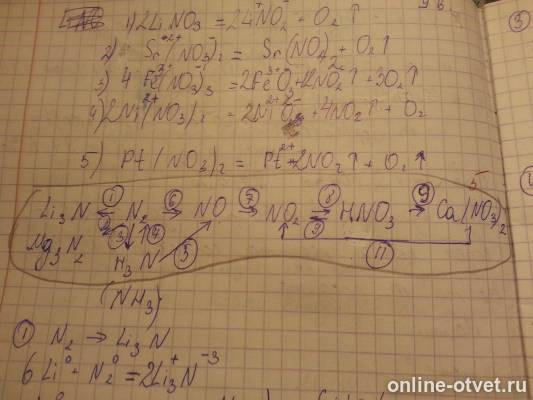 1) 2LiNO₃ = 2LiNO₂ + O₂ ↑
2) Sr(NO₃)₂ = Sr(NO₂)₂ + O₂↑
3) 4Fe(NO₃)₃ = 2Fe₂O₃ + 12NO₂↑ + 3O₂↑
4) 2Ni(NO₃)₂ = 2NiO + 4NO₂↑ + O₂
5) Pt(NO₃)₂ = Pt + 2NO₂↑ + O₂ ↑
5
Li₃N ← ① N₂ → ⑥ NO → ⑦ NO₂ ⇌ ⑧ HNO₃ → ⑨ Ca(NO₃)₂
Mg₃N₂ ② ③ ↓↑ ④ ⑤ ⑨ ⑪
H₃N
(NH₃)
① N₂ → Li₃N
6Li⁰ + N₂⁰ = 2Li₃⁺N⁻³
online-otvet.ru